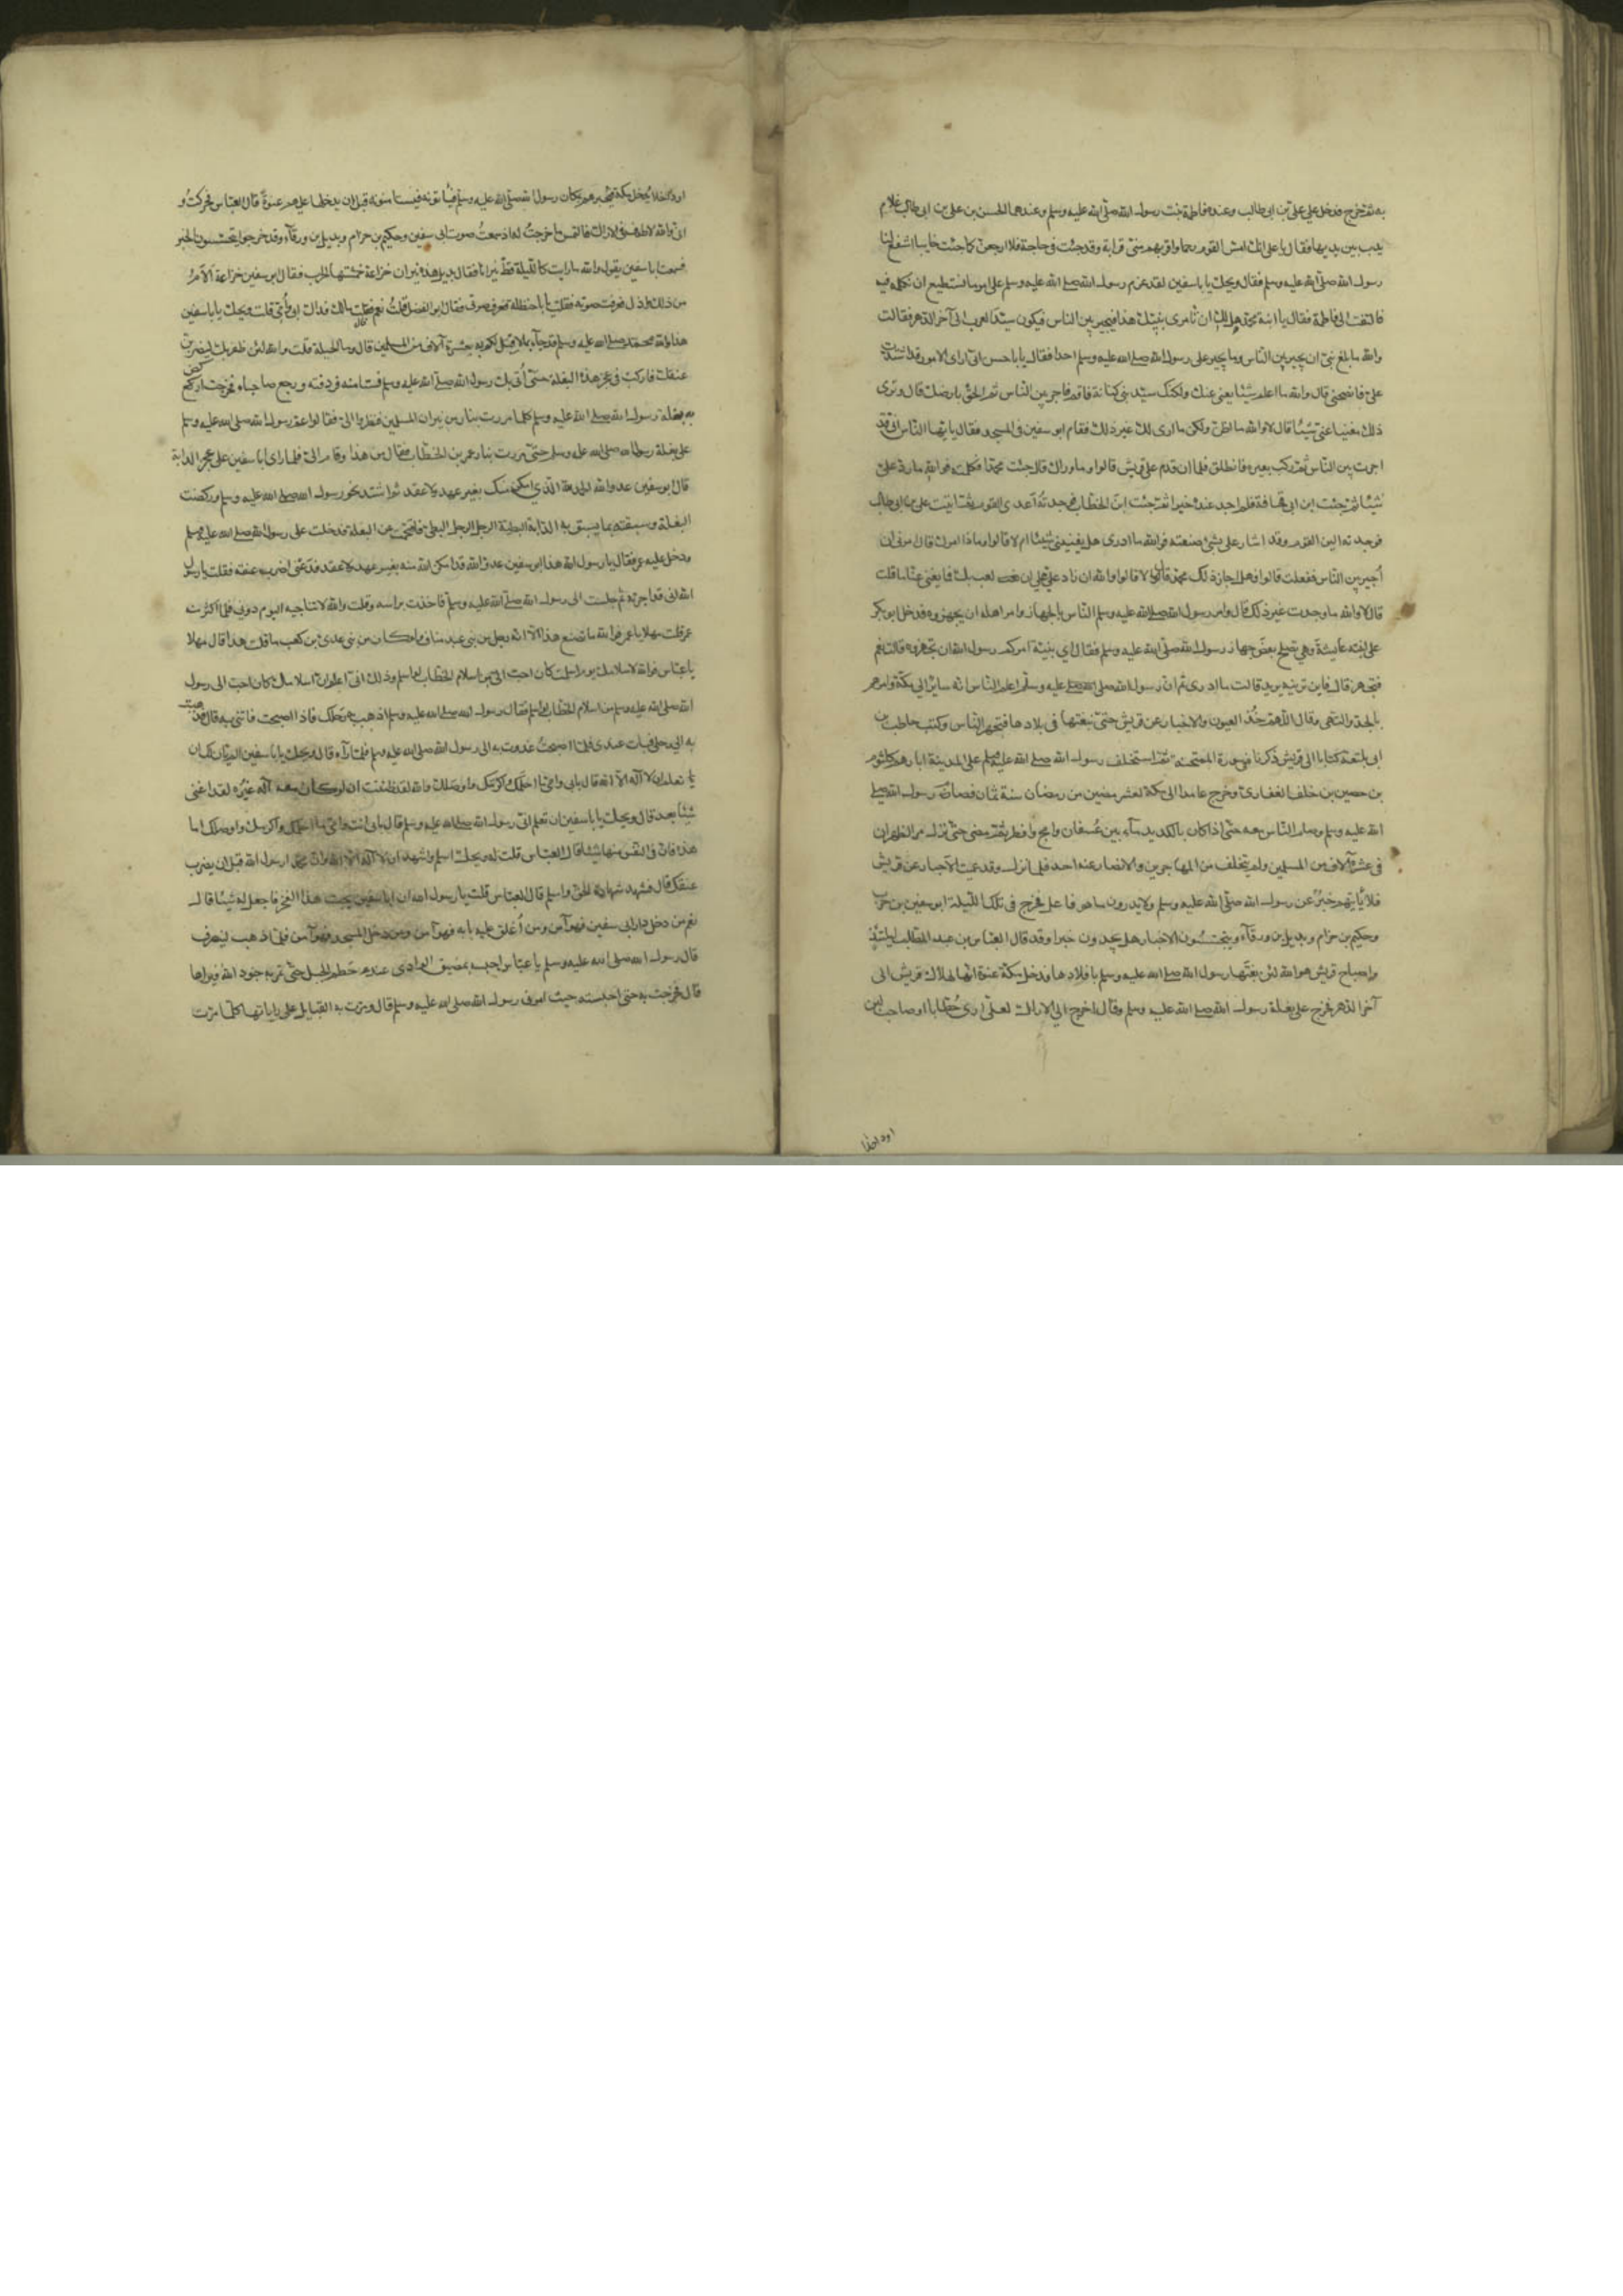 به ثم خرج فدخل علي علي بن ابي طالب وعنده فاطمة بنت رسول الله صلى الله عليه وسلم وعندهما الحسن بن علي بن ابي طالب غلام
يدب بين يديها فقال يا علي انك امس القوم رحما واقربهم مني قرابة وقد جئت في حاجة فلا ارجعن كما جئت خايبا اشفع لنا
رسول الله صلى الله عليه وسلم فقال ويحك يابا سفين لقد عزم رسول الله صلى الله عليه وسلم على امر ما نستطيع ان نكلمه فيه
فالتفت الى فاطمة فقال يا ابنة محمد هل لك ان تامري بنيك هذا فيجير بين الناس فيكون سيد العرب الى آخر الدهر فقالت
والله ما بلغ بني ان يجير بين الناس وما يجير على رسول الله صلى الله عليه وسلم احدا فقال يابا حسن اني ارى الامور قد اشتدت
علي فانصحني قال والله ما اعلم شيئا يغني عنك ولكنك سيد بني كنانة فاقم فاجر بين الناس ثم الحق بارضك قال وترى
ذلك مغنيا عني شيئا قال لا والله ما اظن ولكن ما ارى لك غير ذلك فقام ابو سفين في المسجد فقال يا ايها الناس اني قد
اجرت بين الناس ثم ركب بعيره فانطلق فلما ان قدم على قريش قالوا ما وراك قال جئت محمدا فكلمته فوالله ما رد علي
شيئا ثم جئت ابن ابي قحافة فلم اجد عنده خيرا ثم جئت ابن الخطاب فوجدته اعدى القوم ثم اتيت علي بن ابي طالب
فوجدته الين القوم وقد اشار علي بشئ صنعته فوالله ما ادرى هل يغنيني شيئا ام لا قالوا وماذا امرك قال امرني ان
أجير بين الناس ففعلت قالوا فهل اجاز ذلك محمد قال لا قالوا والله ان زاد علي على ان لعب بك فما يغني عنا ما قلت
قال لا والله ما وجدت غير ذلك قال وامر رسول الله صلى الله عليه وسلم الناس بالجهاز وامر اهله ان يجهزوه فدخل ابو بكر
على ابنته عايشة وهي تصلح بعض جهاز رسول الله صلى الله عليه وسلم فقال اي بنية امركم رسول الله ان تجهزوه قالت نعم
فتجهز قال فاين ترينه يريد قالت ما ادرى ثم ان رسول الله صلى الله عليه وسلم اعلم الناس انه ساير الى مكة وامرهم
بالجد والتهيئ وقال اللهم خذ العيون والاخبار عن قريش حتى نبغتها في بلادها فتجهز الناس وكتب حاطب بن
ابي بلتعة كتابا الى قريش ذكرنا في سورة الممتحنة ثم استخلف رسول الله صلى الله عليه وسلم على المدينة ابا رهم كلثوم
بن حصين بن خلف الغفاري وخرج عامدا الى مكة لعشر مضين من رمضان سنة ثمان فصام رسول الله صلى
الله عليه وسلم وصام الناس معه حتى اذا كان بالكديد ماء بين عسفان وامج وافطر ثم مضى حتى نزل مر الظهران
في عشرة آلاف من المسلمين ولم يتخلف من المهاجرين والانصار عنه احد فلما نزل وقد عميت الاخبار عن قريش
فلا يأتيهم خبر عن رسول الله صلى الله عليه وسلم ولا يدرون ما هو فاعل فخرج في تلك الليلة ابو سفين بن حرب
وحكيم بن حزام وبديل بن ورقاء يتجسسون الاخبار هل يجدون خبرا وقد قال العباس بن عبد المطلب ليلتئذ
واصباح قريش والله لئن بغتها رسول الله صلى الله عليه وسلم بافلادها فدخل مكة عنوة انها لهلاك قريش الى
آخر الدهر فخرج على بغلة رسول الله صلى الله عليه وسلم وقال اخرج الى الاراك لعلي ارى حطابا او صاحب لبن
او داخلا
او داخلا يدخل مكة فيخبرهم بمكان رسول الله صلى الله عليه وسلم فيأتونه فيستامنونه قبل ان يدخلها عليهم عنوة قال العباس فحركت و
اني والله لاطوف في الاراك التمس ما خرجت له اذ سمعت صوت ابي سفين وحكيم بن حزام وبديل بن ورقاء وقد خرجوا يتجسسون الخبر
فسمعت ابا سفين يقول والله ما رايت كالليلة قط نيرانا فقال بديل هذه نيران خزاعة حمشتها الحرب فقال ابو سفين خزاعة الأم
من ذلك واذل فعرفت صوته فقلت يابا حنظلة فعرف صوتي فقال ابو الفضل قلت نعم قال مالك فداك ابي وأمي قلت ويحك يابا سفين
هذا والله محمد صلى الله عليه وسلم قد جاء بما لا قبل لكم به بعشرة آلاف من المسلمين قال وما الحيلة قلت والله لئن ظفر بك ليضربن
عنقك فاركب في عجز هذه البغلة حتى آتي بك رسول الله صلى الله عليه وسلم فتستامنه فردفته ورجع صاحباه فخرجت اركض
به بغلة رسول الله صلى الله عليه وسلم كلما مررت بنار من نيران المسلمين فنظروا الي فقالوا عم رسول الله صلى الله عليه وسلم
على بغلة رسول الله صلى الله عليه وسلم حتى مررت بنار عمر بن الخطاب فقال من هذا وقام الي فلما راى ابا سفين على عجز الدابة
قال ابو سفين عدو الله الحمد لله الذي امكن منك بغير عهد ولا عقد ثم اشتد نحو رسول الله صلى الله عليه وسلم وركضت
البغلة وسبقته بما يسبق به الدابة البطية الرجل البطئ فاقتحمت عن البغلة فدخلت على رسول الله صلى الله عليه وسلم
ودخل عليه عمر فقال يا رسول الله هذا ابو سفين عدو الله قد امكن الله منه بغير عهد ولا عقد فدعني اضرب عنقه فقلت يا رسول
الله اني قد اجرته ثم جلست الى رسول الله صلى الله عليه وسلم فاخذت براسه وقلت والله لا يناجيه اليوم دوني فلما اكثر فيه
عمر قلت مهلا يا عمر فوالله ما تصنع هذا الا انه رجل من بني عبد مناف ولو كان من بني عدي بن كعب ما قلت هذا قال مهلا
يا عباس فوالله لاسلامك يوم اسلمت كان احب الي من اسلام الخطاب لو اسلم وذلك اني اعلم ان اسلامك كان احب الى رسول
الله صلى الله عليه وسلم من اسلام الخطاب لو اسلم فقال رسول الله صلى الله عليه وسلم اذهب به الى رحلك فاذا اصبحت فاتني به قال فذهبت
به الى رحلي فبات عندي فلما اصبحت غدوت به الى رسول الله صلى الله عليه وسلم فلما رآه قال ويحك يابا سفين الم يأن لك ان
تعلم ان لا اله الا الله قال بابي وامي ما احلمك واكرمك واوصلك والله لقد ظننت ان لو كان معه اله غيره لقد اغنى
شيئا بعد قال ويحك يابا سفين الم يأن لك ان تعلم اني رسول الله صلى الله عليه وسلم قال بابي انت وامي ما احلمك واكرمك واوصلك اما
هذه فان في النفس منها شيئا قال العباس قلت له ويحك اسلم واشهد ان لا اله الا الله وان محمدا رسول الله قبل ان يضرب
عنقك قال فشهد شهادة الحق واسلم قال العباس قلت يا رسول الله ان ابا سفين يحب هذا الفخر فاجعل له شيئا قال
نعم من دخل دار ابي سفين فهو آمن ومن أغلق عليه بابه فهو آمن ومن دخل المسجد فهو آمن فلما ذهب لينصرف
قال رسول الله صلى الله عليه وسلم يا عباس احبسه بمضيق الوادي عند خطم الجبل حتى تمر به جنود الله فيراها
قال فخرجت به حتى احبسته حيث امرني رسول الله صلى الله عليه وسلم قال ومرت به القبايل على راياتها كلما مرت